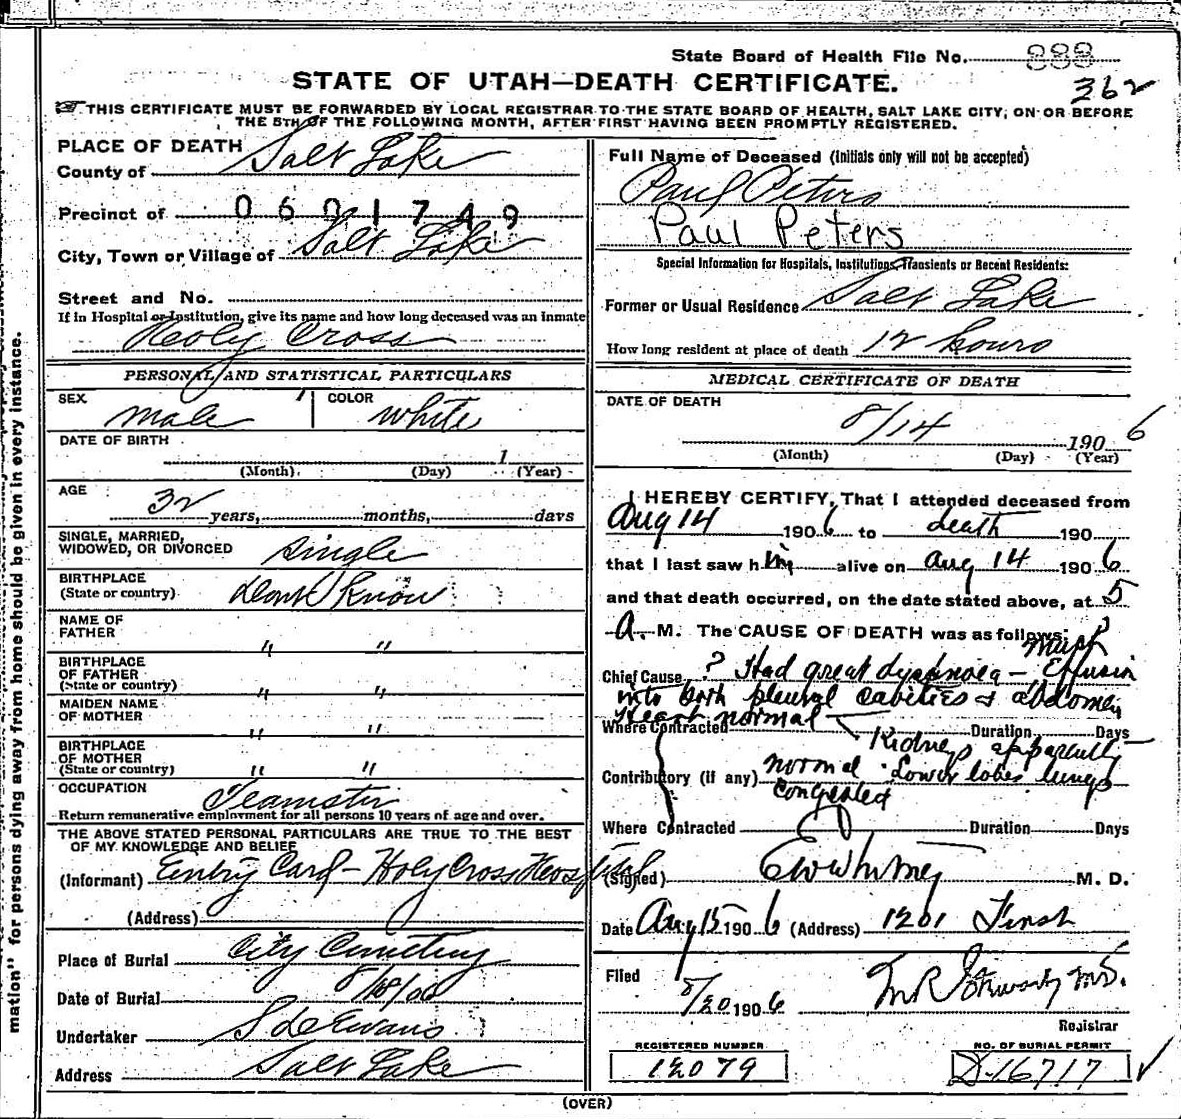 State Board of Health File No. 888
362
STATE OF UTAH—DEATH CERTIFICATE.
☞ THIS CERTIFICATE MUST BE FORWARDED BY LOCAL REGISTRAR TO THE STATE BOARD OF HEALTH, SALT LAKE CITY, ON OR BEFORE
THE 5TH OF THE FOLLOWING MONTH, AFTER FIRST HAVING BEEN PROMPTLY REGISTERED.
mation" for persons dying away from home should be given in every instance.
PLACE OF DEATH
County of Salt Lake
Precinct of 0601749
City, Town or Village of Salt Lake
Street and No.
If in Hospital or Institution, give its name and how long deceased was an inmate
Holy Cross
PERSONAL AND STATISTICAL PARTICULARS
SEX male COLOR white
DATE OF BIRTH
1
(Month) (Day) (Year)
AGE
32 years, months, days
SINGLE, MARRIED,
WIDOWED, OR DIVORCED single
BIRTHPLACE
(State or country) dont Know
NAME OF
FATHER " "
BIRTHPLACE
OF FATHER
(State or country) " "
MAIDEN NAME
OF MOTHER " "
BIRTHPLACE
OF MOTHER
(State or country) " "
OCCUPATION Teamster
Return remunerative employment for all persons 10 years of age and over.
THE ABOVE STATED PERSONAL PARTICULARS ARE TRUE TO THE BEST
OF MY KNOWLEDGE AND BELIEF
(Informant) Entry Card - Holy Cross Hospital
(Address)
Place of Burial City Cemetery
Date of Burial 8/18/06
Undertaker S D Evans
Address Salt Lake
Full Name of Deceased (Initials only will not be accepted)
Paul Peters
Paul Peters
Special Information for Hospitals, Institutions, Transients or Recent Residents:
Former or Usual Residence Salt Lake
How long resident at place of death 12 hours
MEDICAL CERTIFICATE OF DEATH
DATE OF DEATH
8/14 1906
(Month) (Day) (Year)
I HEREBY CERTIFY, That I attended deceased from
Aug 14 1906 to death 190
that I last saw him alive on Aug 14 1906
and that death occurred, on the date stated above, at 5
A. M. The CAUSE OF DEATH was as follows:
Chief Cause ? Had great dyspnoea - Effusion
into both pleural cavities & abdomen
Heart normal -
Where Contracted Duration Days
Kidneys apparently
Contributory (if any) normal. Lower lobes lungs
congested
Where Contracted Duration Days
(Signed) E W Whitney M. D.
Date Aug 15 1906 (Address) 1201 First
Filed
8/20 1906
Registrar
REGISTERED NUMBER
12079
NO. OF BURIAL PERMIT
D-16717
(OVER)